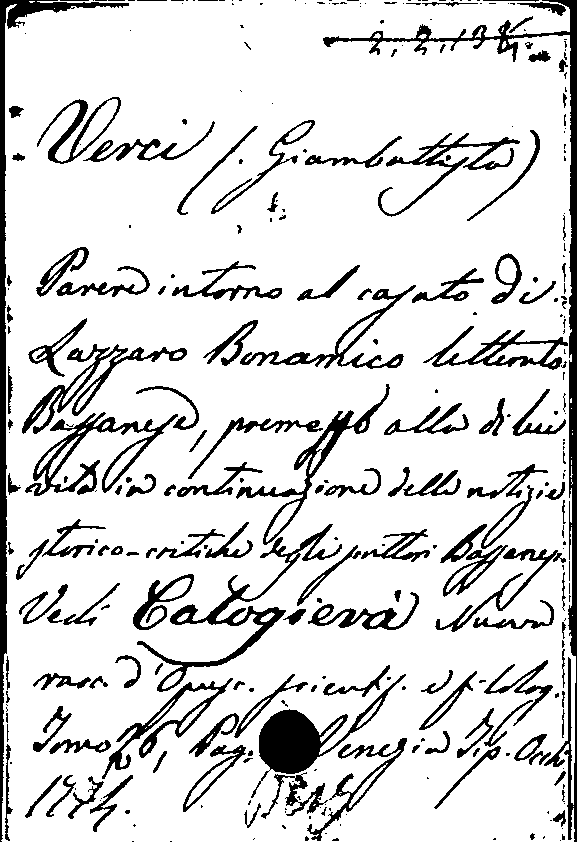 Verci (. Giambattista)
Parere intorno al casato di
Lazzaro Bonamico letterato
Bassanese, premesso alla di lui
vita in continuazione delle notizie
storico-critiche degli scrittori Bassanesi.
Vedi Calogierà Nuova
racc. d'Opusc. scientif. e filolog.
Tomo 26, Pag. Venezia Tip. Occhi,